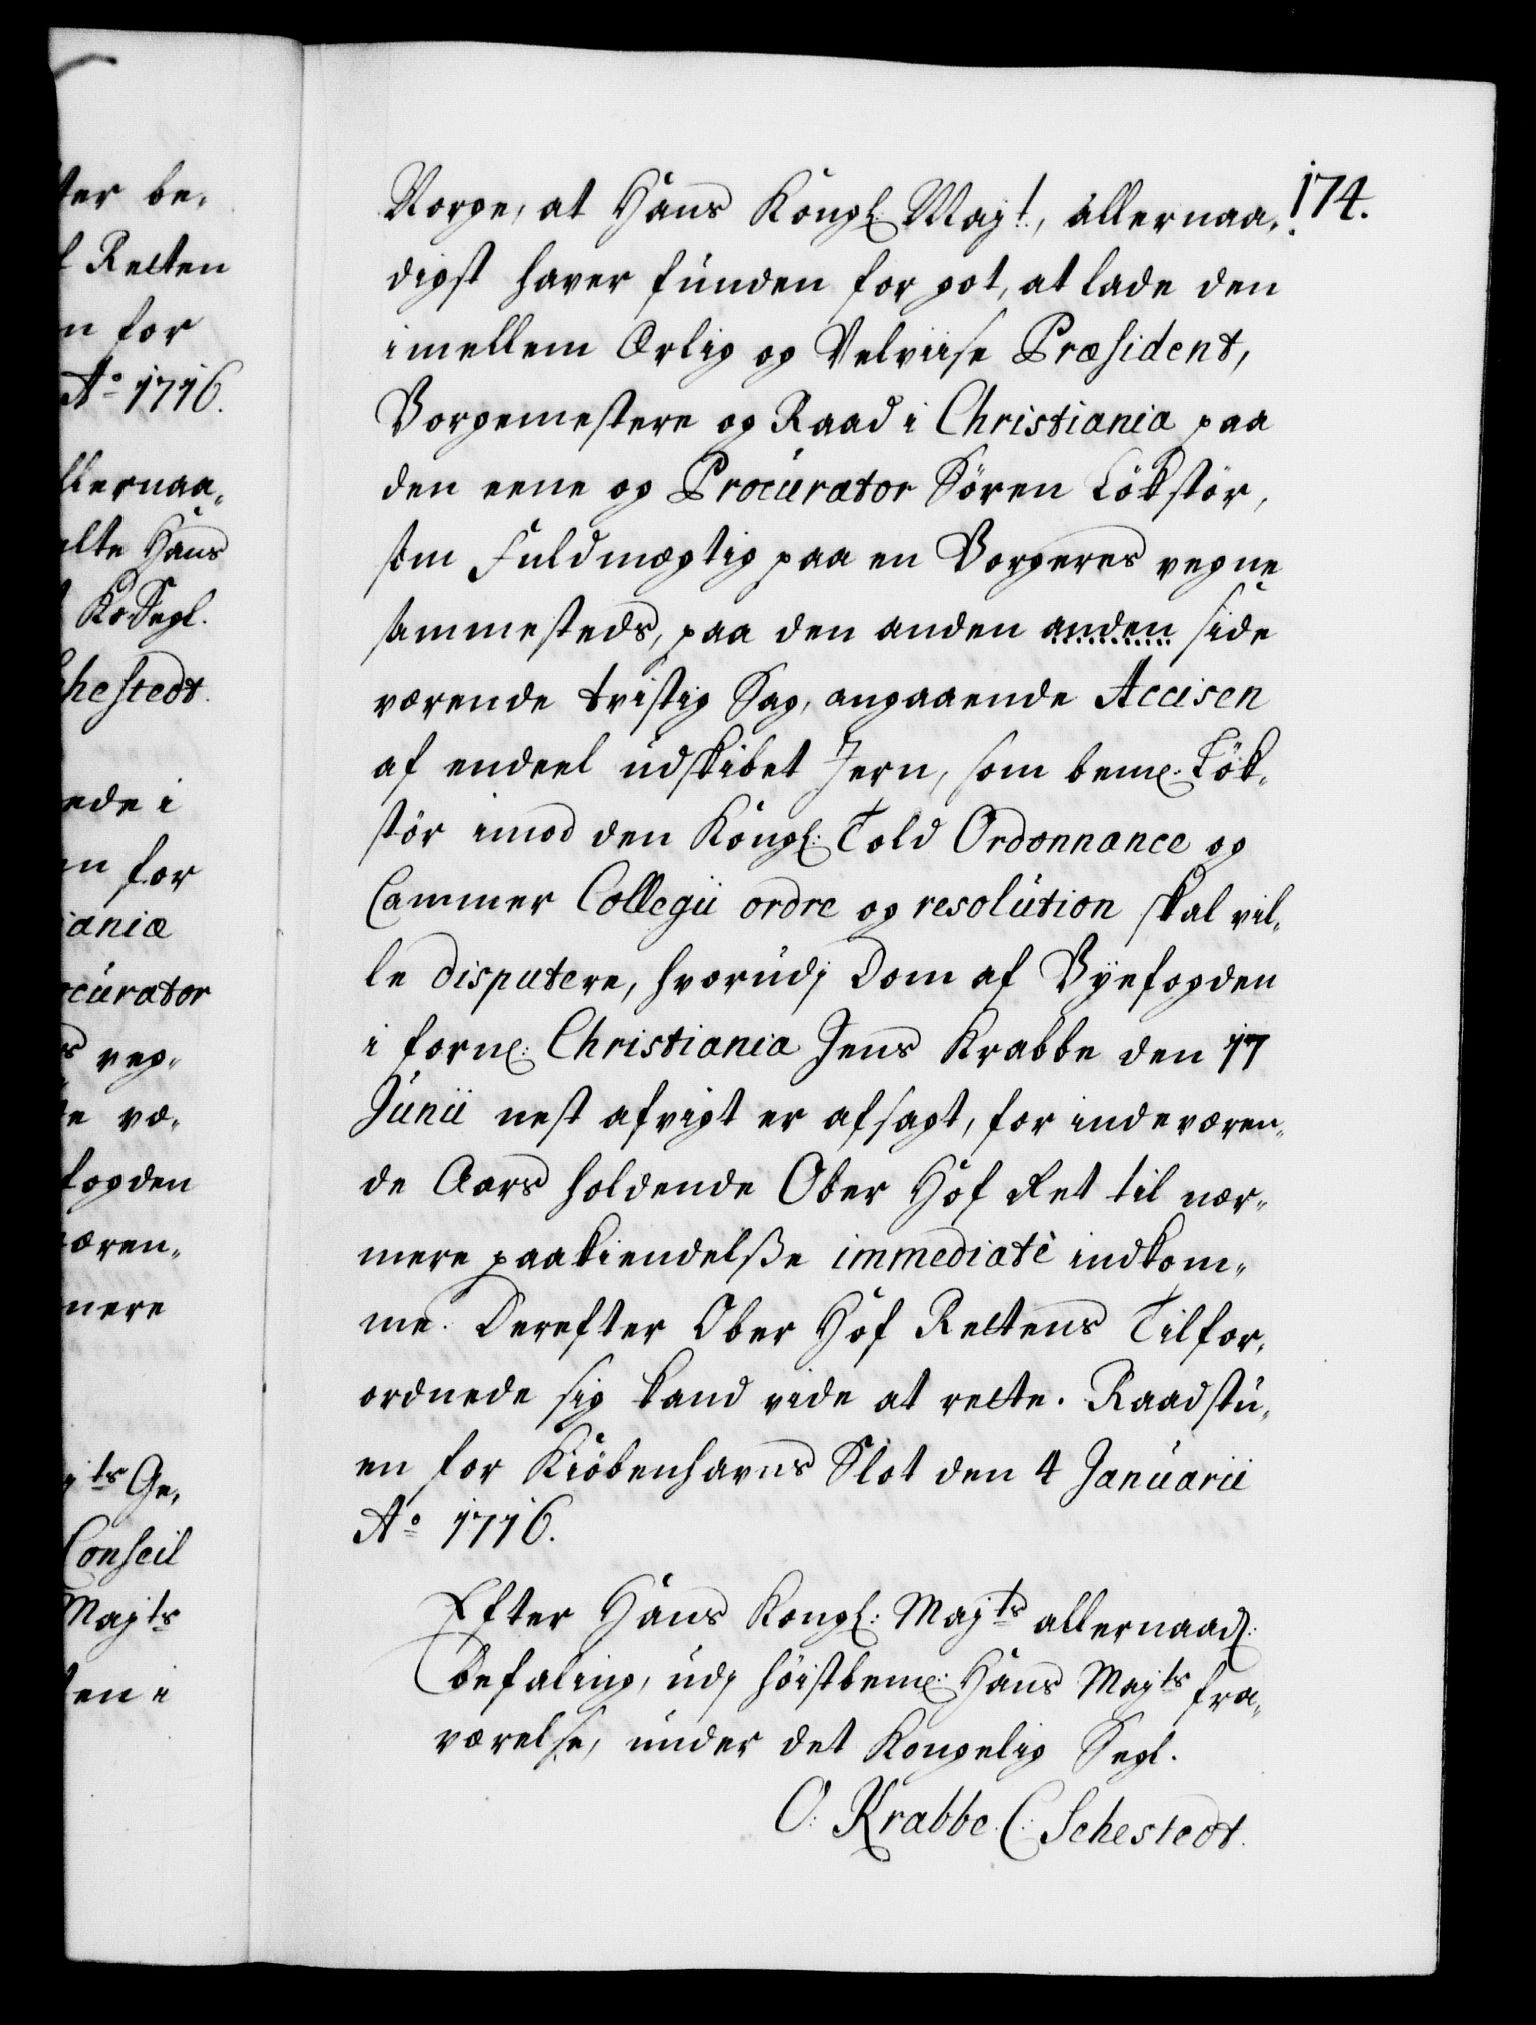 ter be,
Retten
n for
Aº 1716.
llernaa,
alte Hans
KoSegl.
hestedt.
ede i
en for
ianiæ
ocurator
s veg,
te væ,
fogden
væren,
mere
ts Ge,
Conseil
Majts
ten i
174.
Norge, at Hans Kongl: Mayt, allernaa,
digst haver funden for got, at lade den
imellem Ærlig og Velviise Præsident,
Borgemestere og Raad i Christiania paa
den eene og Procurator Sören Lökstör,
som Fuldmægtig paa en Borgeres vegne
sammesteds, paa den anden anden side
værende tvistig Sag, angaaende Accisen
af endeel udskibet Jern, som beme: Lök,
stör imod den Kongl: Told Ordonnance og
Cammer Collegii ordre og resolution skal vil,
le disputere, hvorudj Dom af Byefogden
i forne: Christiania Jens Krabbe den 17
Junii nest afvigt er afsagt, for indeværen,
de Aars holdende Ober Hof Ret til nær,
mere paakiendelsse immediatè indkom,
me. Derefter Ober Hof Rettens Tilfor,
ordnede sig kand vide at rette. Raadstu,
en for Kiöbenhavns Slot den 4 Januarii
Aº 1716.
Efter Hans Kongl: Majts allernaad:
befaling, udj höistbeme: Hans Majts fra,
værelse, under det Kongelig Segl.
O: Krabbe. C: Sehestedt.